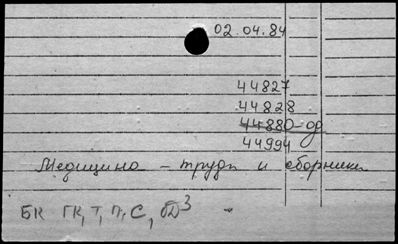 02.04.84
44827
44828
44880-од
44994
Медицина - труды и сборники
БК ГК, Т, П, С, БД³